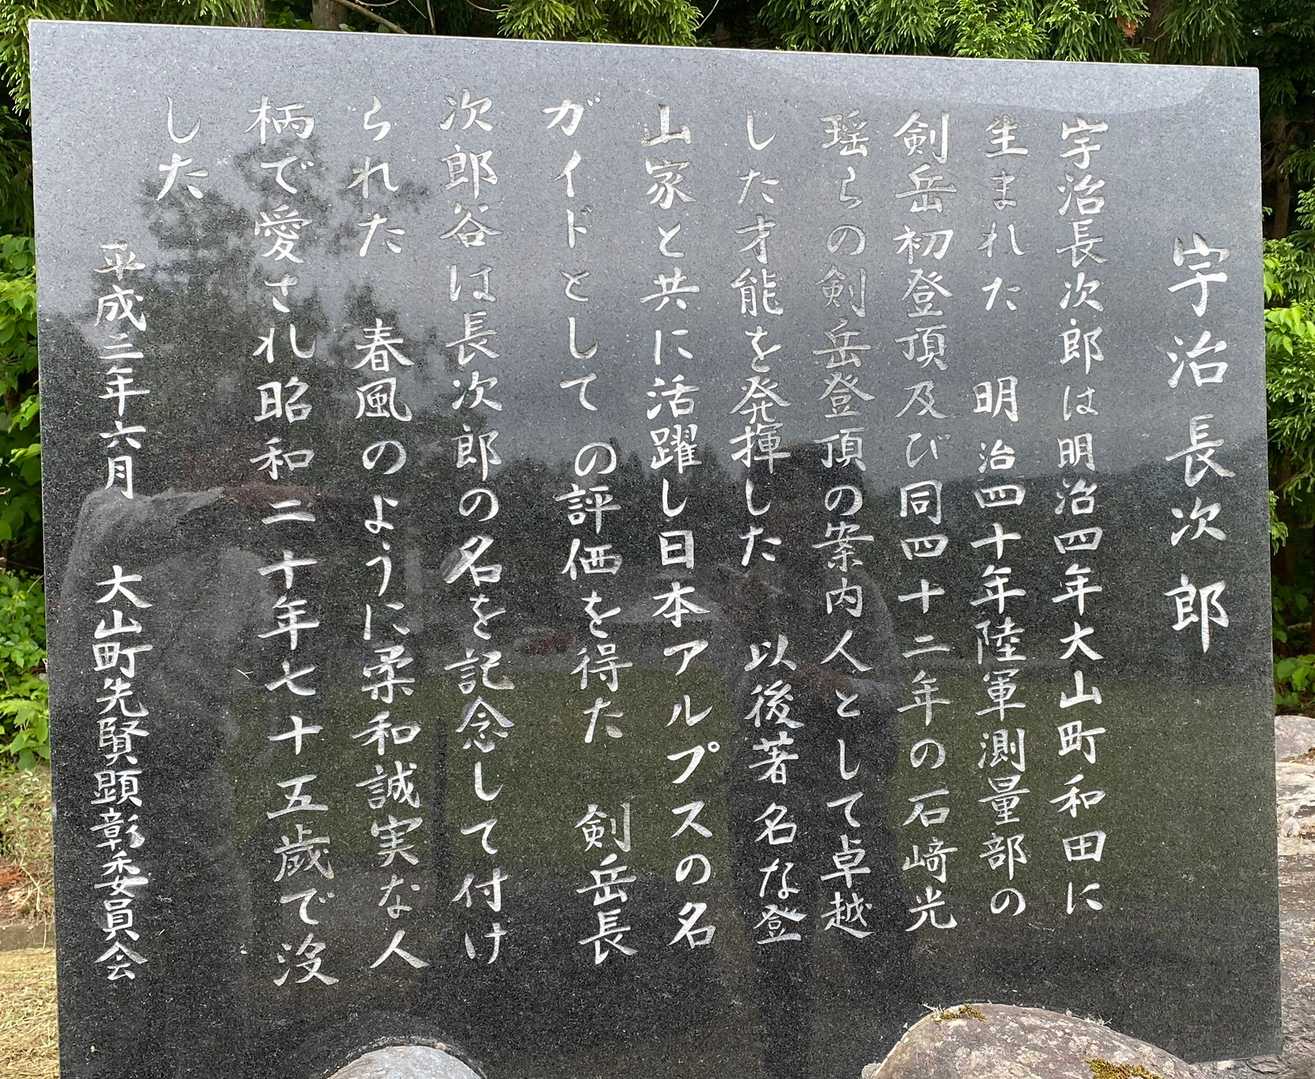 宇治長次郎
宇治長次郎は明治四年大山町和田に
生まれた 明治四十年陸軍測量部の
剣岳初登頂及び同四十二年の石﨑光
瑶らの剣岳登頂の案内人として卓越
した才能を発揮した 以後著名な登
山家と共に活躍し日本アルプスの名
ガイドとして の評価を得た 剣岳長
次郎谷は長次郎の名を記念して付け
られた 春風のように柔和誠実な人
柄で愛され昭和二十年七十五歳で没
した
平成二年六月 大山町先賢顕彰委員会